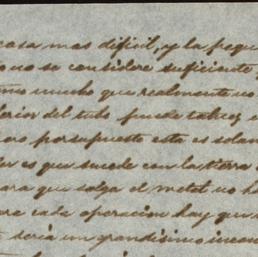 casa mas dificil, y la pequ
no se considere suficiente
mucho que realmente no
del tubo puede talvez
por supuesto esta es solam
es que sucede con la tierra
para que salga el metal no ha
cada operacion hay que
seria un grandisimo incon